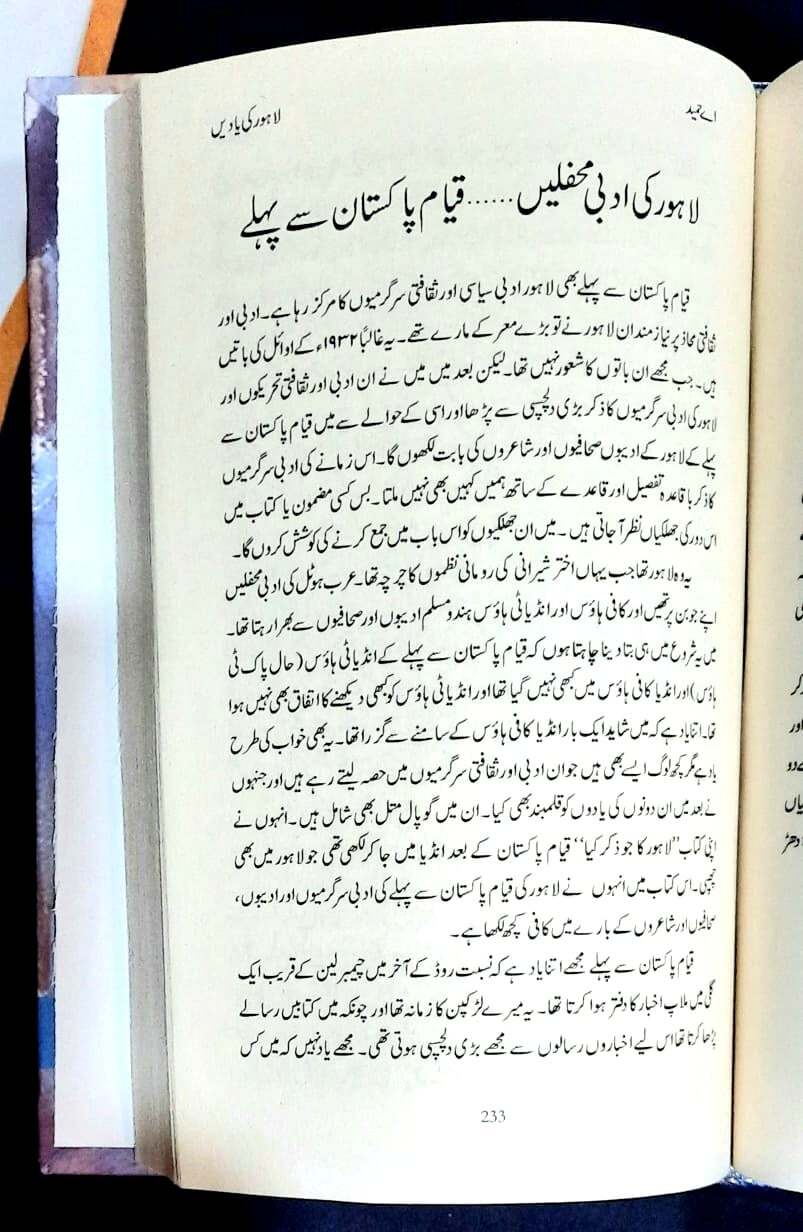 اے حمید
لاہور کی یادیں
لاہور کی ادبی محفلیں ...... قیام پاکستان سے پہلے
قیام پاکستان سے پہلے بھی لاہور ادبی سیاسی اور ثقافتی سرگرمیوں کا مرکز رہا ہے۔ ادبی اور
ثقافتی محاذ پر نیاز مندان لاہور نے تو بڑے معرکے مارے تھے۔ یہ غالباً ۱۹۳۲ء کے اوائل کی باتیں
ہیں۔ جب مجھے ان باتوں کا شعور نہیں تھا۔ لیکن بعد میں میں نے ان ادبی اور ثقافتی تحریکوں اور
لاہور کی ادبی سرگرمیوں کا ذکر بڑی دلچسپی سے پڑھا اور اسی کے حوالے سے میں قیام پاکستان سے
پہلے کے لاہور کے ادیبوں صحافیوں اور شاعروں کی بابت لکھوں گا۔ اس زمانے کی ادبی سرگرمیوں
کا ذکر باقاعدہ تفصیل اور قاعدے کے ساتھ ہمیں کہیں بھی نہیں ملتا۔ بس کسی مضمون یا کتاب میں
اس دور کی جھلکیاں نظر آ جاتی ہیں۔ میں ان جھلکیوں کو اس باب میں جمع کرنے کی کوشش کروں گا۔
یہ وہ لاہور تھا جب یہاں اختر شیرانی کی رومانی نظموں کا چرچہ تھا۔ عرب ہوٹل کی ادبی محفلیں
اپنے جوبن پر تھیں اور کافی ہاؤس اور انڈیا ٹی ہاؤس ہندو مسلم ادیبوں اور صحافیوں سے بھرا رہتا تھا۔
میں یہ شروع میں ہی بتا دینا چاہتا ہوں کہ قیام پاکستان سے پہلے کے انڈیا ٹی ہاؤس (حال پاک ٹی
ہاؤس) اور انڈیا کافی ہاؤس میں کبھی نہیں گیا تھا اور انڈیا ٹی ہاؤس کو کبھی دیکھنے کا اتفاق بھی نہیں ہوا
تھا۔ اتنا یاد ہے کہ میں شاید ایک بار انڈیا کافی ہاؤس کے سامنے سے گزرا تھا۔ یہ بھی خواب کی طرح
یاد ہے مگر کچھ لوگ ایسے بھی ہیں جو ان ادبی اور ثقافتی سرگرمیوں میں حصہ لیتے رہے ہیں اور جنہوں
نے بعد میں ان دونوں کی یادوں کو قلمبند بھی کیا۔ ان میں گوپال متل بھی شامل ہیں۔ انہوں نے
اپنی کتاب ''لاہور کا جو ذکر کیا'' قیام پاکستان کے بعد انڈیا میں جا کر لکھی تھی جو لاہور میں بھی
چھپی۔ اس کتاب میں انہوں نے لاہور کی قیام پاکستان سے پہلے کی ادبی سرگرمیوں اور ادیبوں،
صحافیوں اور شاعروں کے بارے میں کافی کچھ لکھا ہے۔
قیام پاکستان سے پہلے مجھے اتنا یاد ہے کہ نسبت روڈ کے آخر میں چیمبرلین کے قریب ایک
گلی میں ملاپ اخبار کا دفتر ہوا کرتا تھا۔ یہ میرے لڑکپن کا زمانہ تھا اور چونکہ میں کتابیں رسالے
پڑھا کرتا تھا اس لیے اخباروں رسالوں سے مجھے بڑی دلچسپی ہوتی تھی۔ مجھے یاد نہیں کہ میں کس
233
کر
اور